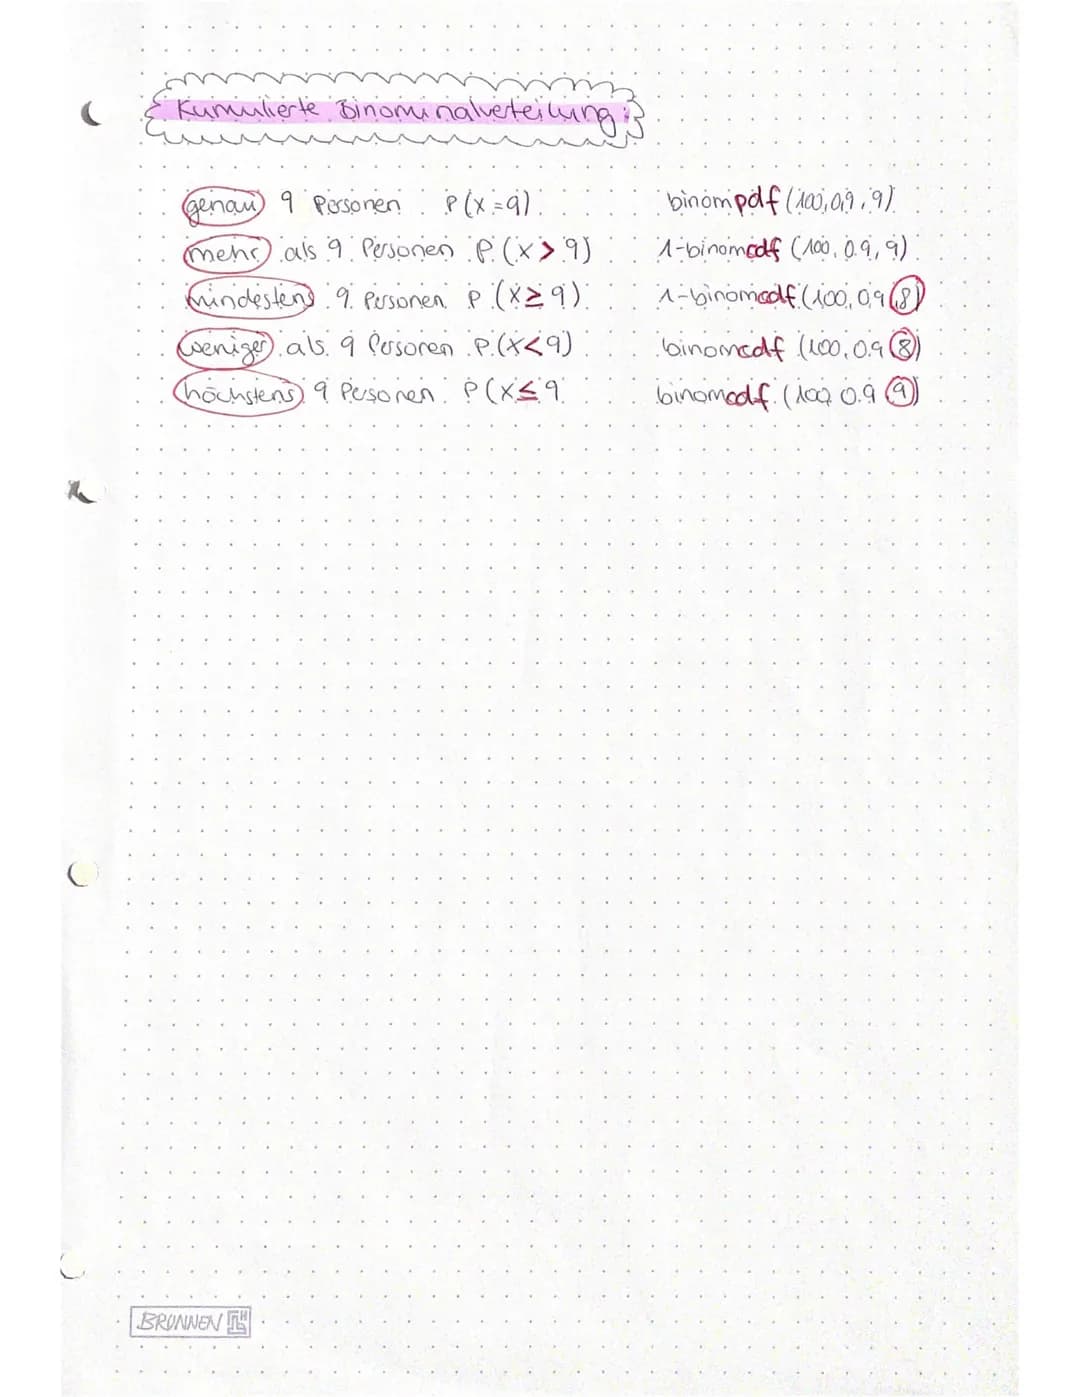 Kumulierte Binominalverteilung:
genau 9 Personen P(X=9) binompdf (100,0,9,9)
mehr als 9 Personen P(X>9) 1-binomcdf (100,0.9,9)
mindestens 9 Personen P(X≥9) 1-binomcdf (100,0,9,8)
weniger als 9 Personen P(X<9) binomcdf (100,0.9 8)
höchstens 9 Personen P(X≤9 binomcdf (100 0.9 9)
BRUNNEN